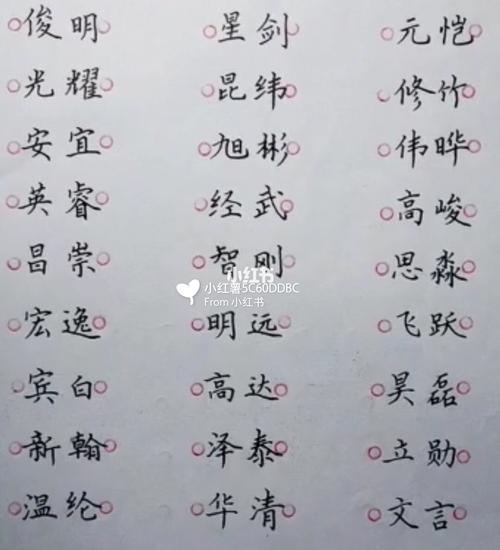 俊明 星剑 元恺
光耀 昆纬 修竹
安宜 旭彬 伟晔
英睿 经武 高峻
昌崇 智刚 思淼
小红书
小红薯5C60DDBC
From 小红书
宏逸 明远 飞跃
宾白 高达 昊磊
新翰 泽泰 立勋
温纶 华清 文言